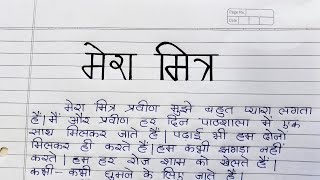 मेरा मित्र
मेरा मित्र प्रवीण मुझे बहुत प्यारा लगता
हैं। मैं और प्रवीण हर दिन पाठशाला में एक
साथ मिलकर जाते हैं। पढाई भी हम दोनो
मिलकर ही करते हैं। हम कभी झगडा नहीं
करते। हम हर रोज शाम को खेलते हैं।
कभी-कभी घुमने के लिए जाते हैं।